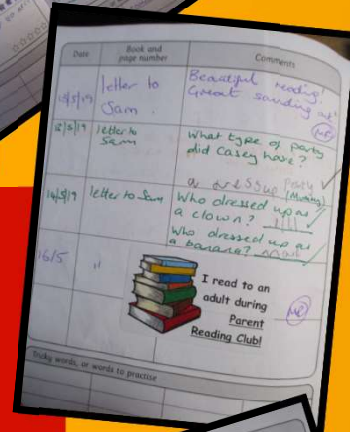 Date
Book and page number
Comments
letter to Sam
Beautiful reading!
Great sounding
12/5/19
letter to Sam
What type of party
did Casey have?
a dressup party
(Mummy)
14/5/19
letter to Sam
Who dressed up as
a clown?
Who dressed up as
a banana? Mark
16/5
"
I read to an
adult during
Parent
Reading Club!
Tricky words, or words to practise